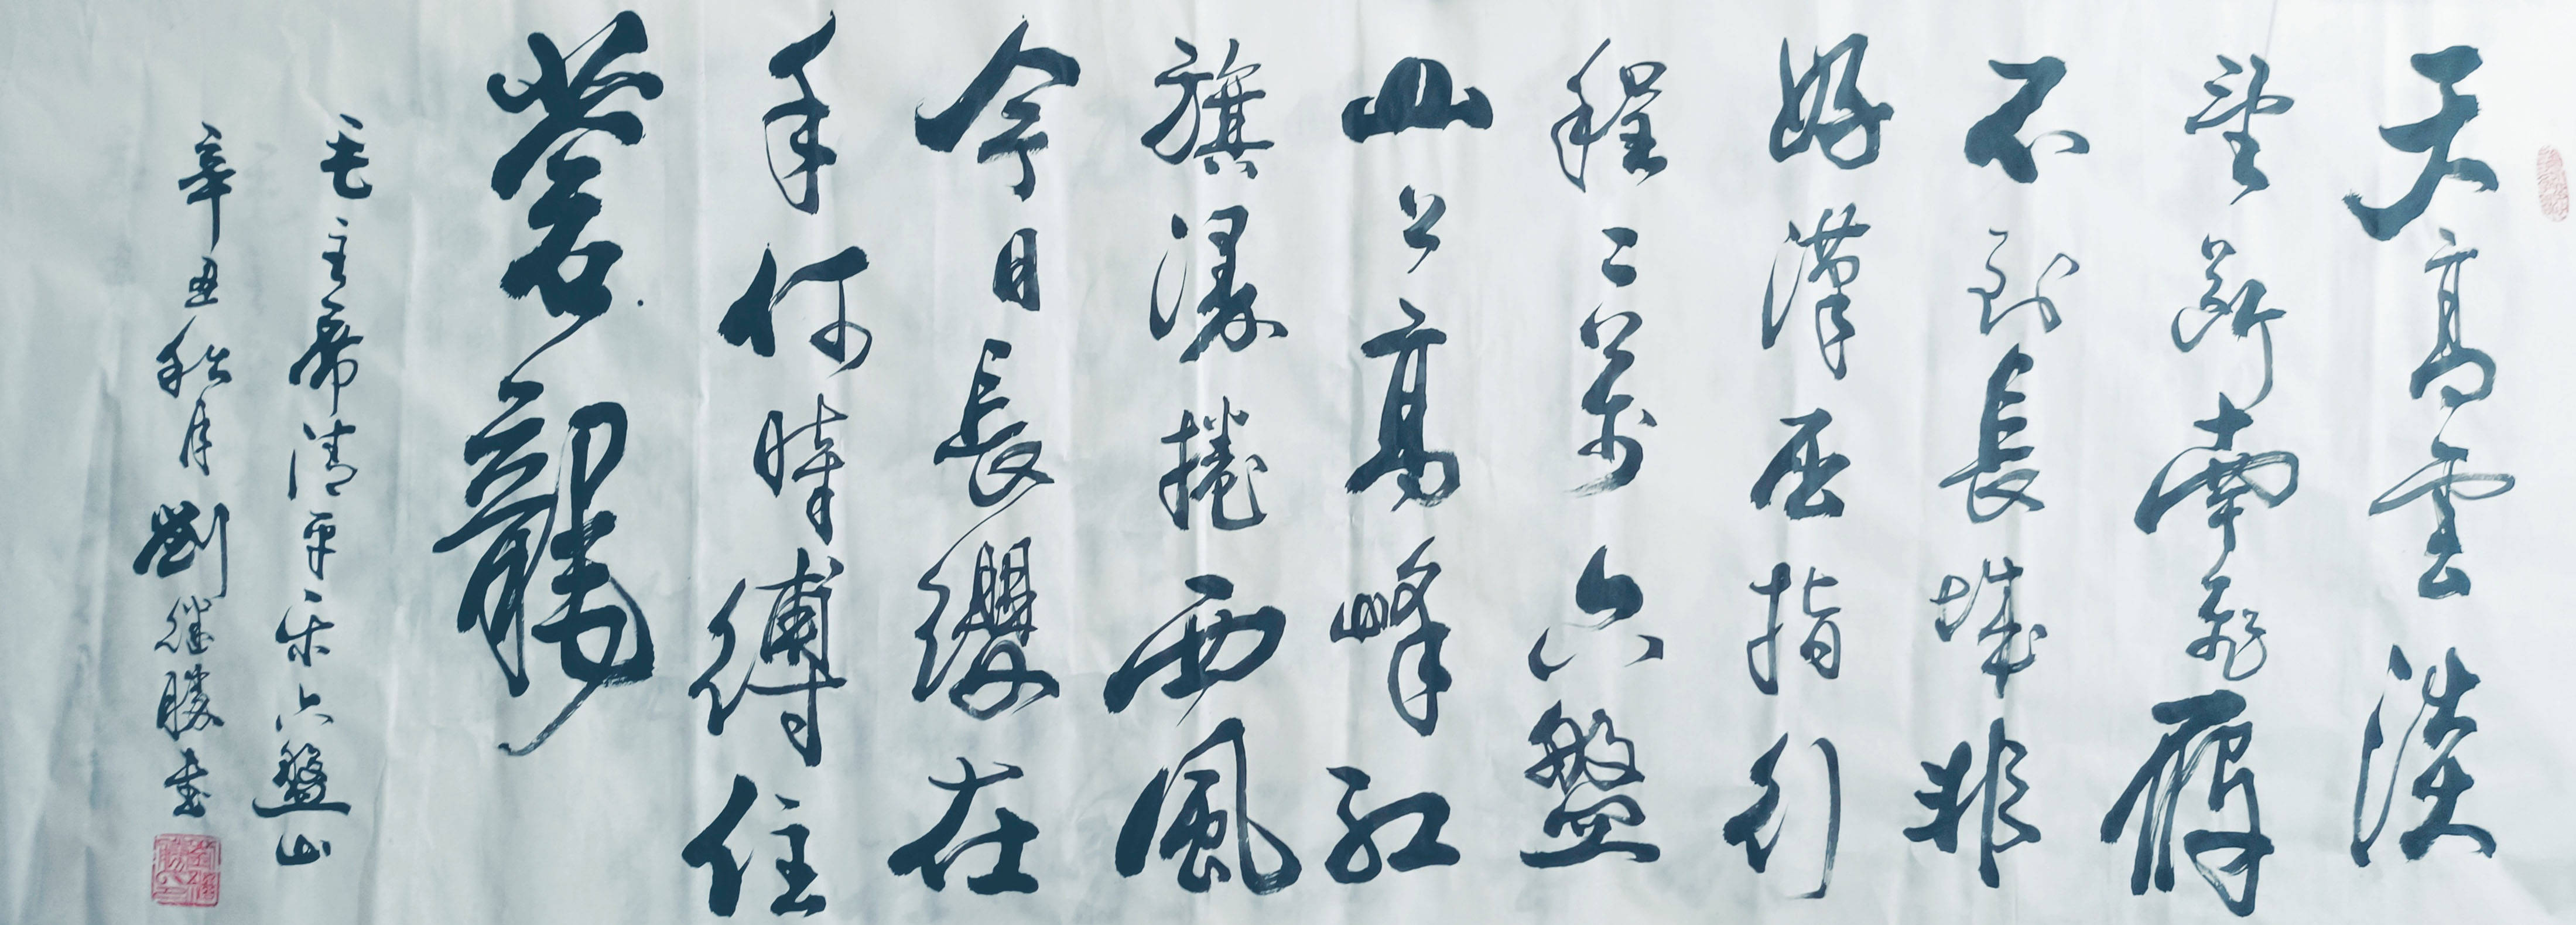 天高雲淡
望斷南飛雁
不到長城非
好漢屈指行
程二萬六盤
山上高峰紅
旗漫捲西風
今日長纓在
手何時縛住
蒼龍
毛主席清平樂六盤山
辛丑秋月劉繼勝書